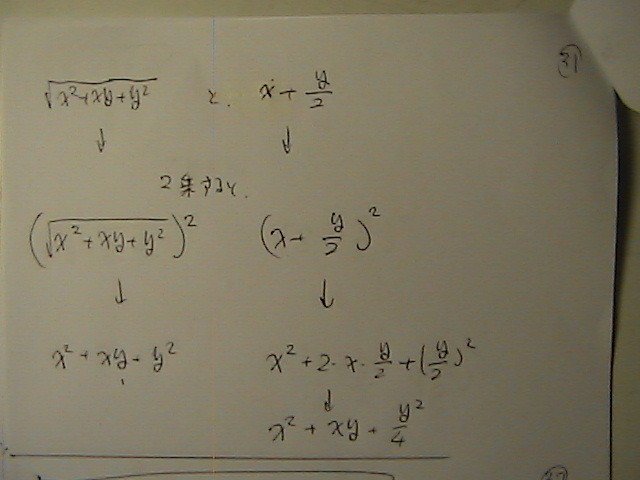 ㉛
√(x²+xy+y²) と. x + y/2
↓ ↓
2乗すると.
(√(x²+xy+y²))² (x + y/2)²
↓ ↓
x² + xy + y² x² + 2・x・y/2 + (y/2)²
↓
x² + xy + y²/4